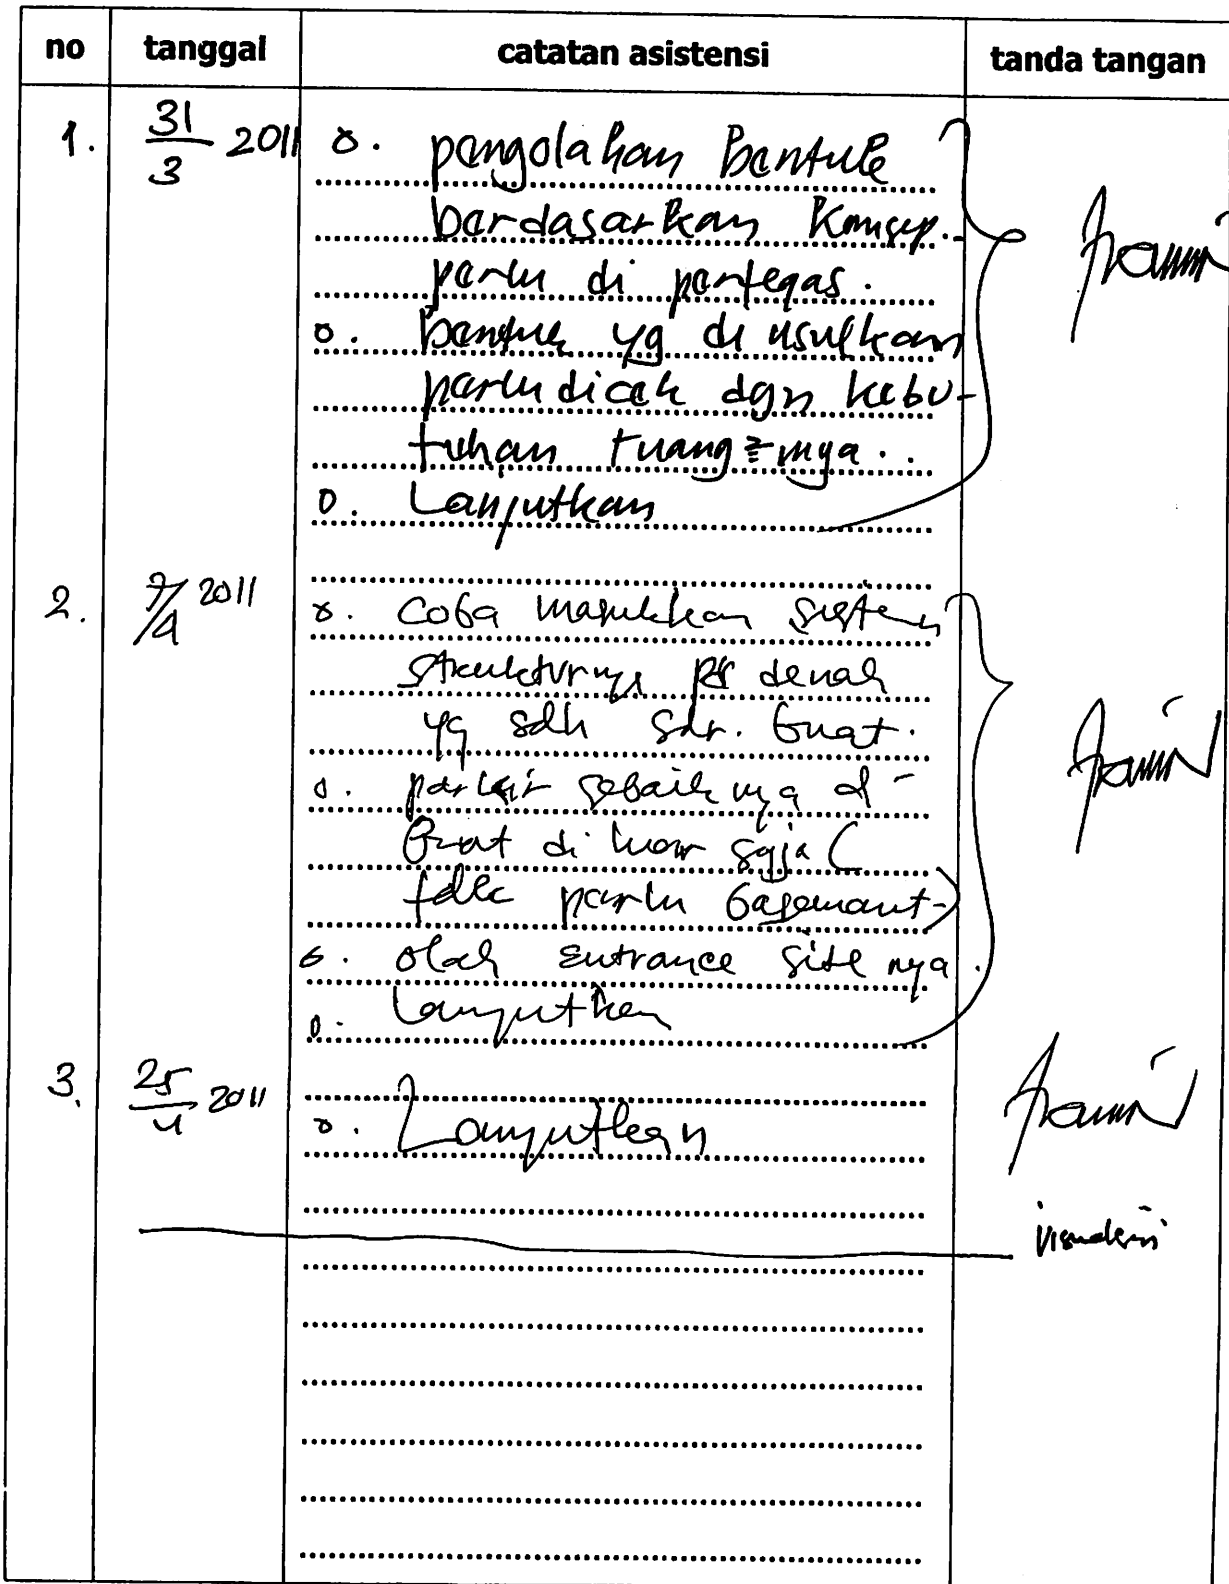 no tanggal catatan asistensi tanda tangan
1. 31/3 2011 o. pengolahan Bentuk
berdasarkan Konsep
perlu di pertegas.
o. bentuk yg di usulkan
perlu dicek dgn kebu-
tuhan ruang2nya..
o. Lanjutkan
2. 7/4 2011
o. coba masukkan sistem
strukturnya denah
yg sdh sdr. buat.
o. parkir sebaiknya di-
buat di luar saja (
tdk perlu basemant-)
o. olah entrance site nya.
o. Lanjutkan
3. 25/4 2011
o. Lanjutkan